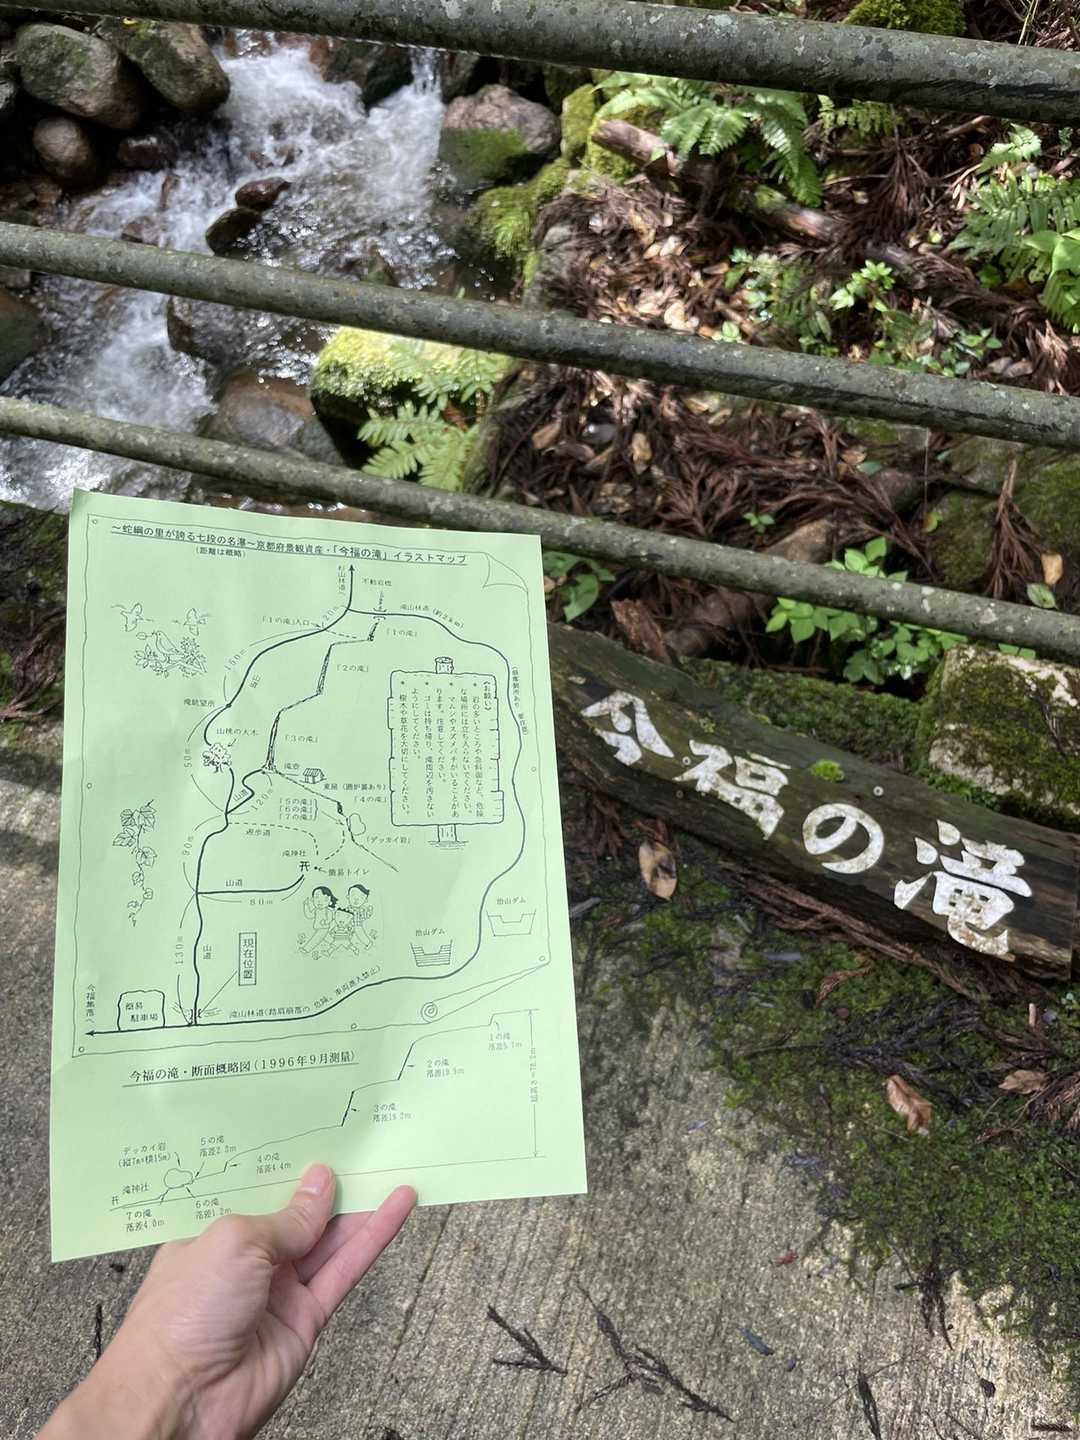 ～蛇綱の里が誇る七段の名瀑～京都府景観資産・「今福の滝」イラストマップ
(距離は概略)
杉山林道
不動岩橋
120m
滝山林道(約2km)
「1の滝」入口
「1の滝」
150m
山道
「2の滝」
滝眺望所
山桃の大木
「3の滝」
50m
滝壺
東屋(囲炉裏あり)
山道
120m
「4の滝」
「5の滝」
「6の滝」
「7の滝」
遊歩道
「デッカイ岩」
90m
滝神社
簡易トイレ
山道
80m
《お願い》
岩の多いところや急斜面など、危険
な場所には立ち入らないでください。
マムシやスズメバチがいることがあ
ります。注意してください。
ゴミは持ち帰り、滝周辺を汚さない
ようにしてください。
樹木や草花を大切にしてください。
治山ダム
治山ダム
130m
山道
現在位置
今福集落へ
簡易
駐車場
滝山林道(路肩崩落の危険、車両進入禁止)
今福の滝・断面概略図(1996年9月測量)
1の滝
落差5.7m
2の滝
落差19.9m
3の滝
落差19.2m
デッカイ岩
(縦7m×横15m)
5の滝
落差2.3m
4の滝
落差4.4m
滝神社
7の滝
落差4.0m
6の滝
落差1.2m
今福の滝